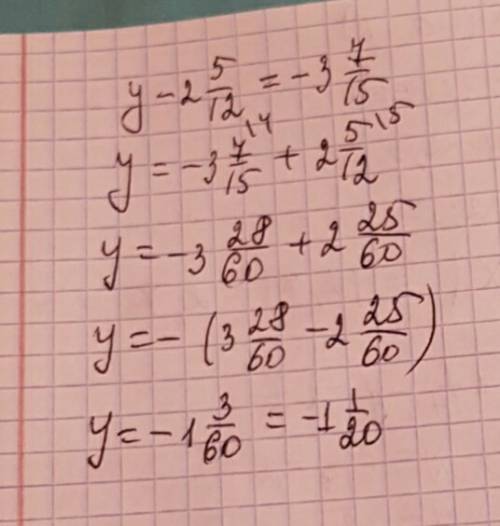 y - 2 5/12 = -3 7/15
y = -3 7/15 \4 + 2 5/12 \5
y = -3 28/60 + 2 25/60
y = - (3 28/60 - 2 25/60)
y = -1 3/60 = -1 1/20